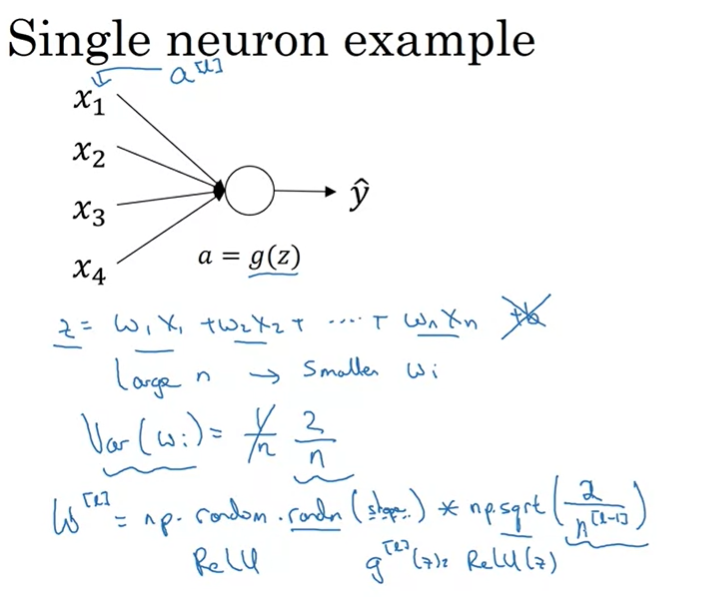 Single neuron example
a^[l]
x₁
x₂
x₃
x₄
ŷ
a = g(z)
z = w₁x₁ + w₂x₂ + ····· + wₙxₙ +b
Large n → Smaller wᵢ
Var(wᵢ) = 1/n 2/n
W^[l] = np.random.randn(shape..) * np.sqrt(2/n^[l-1])
ReLU g^[l](z) = ReLU(z)